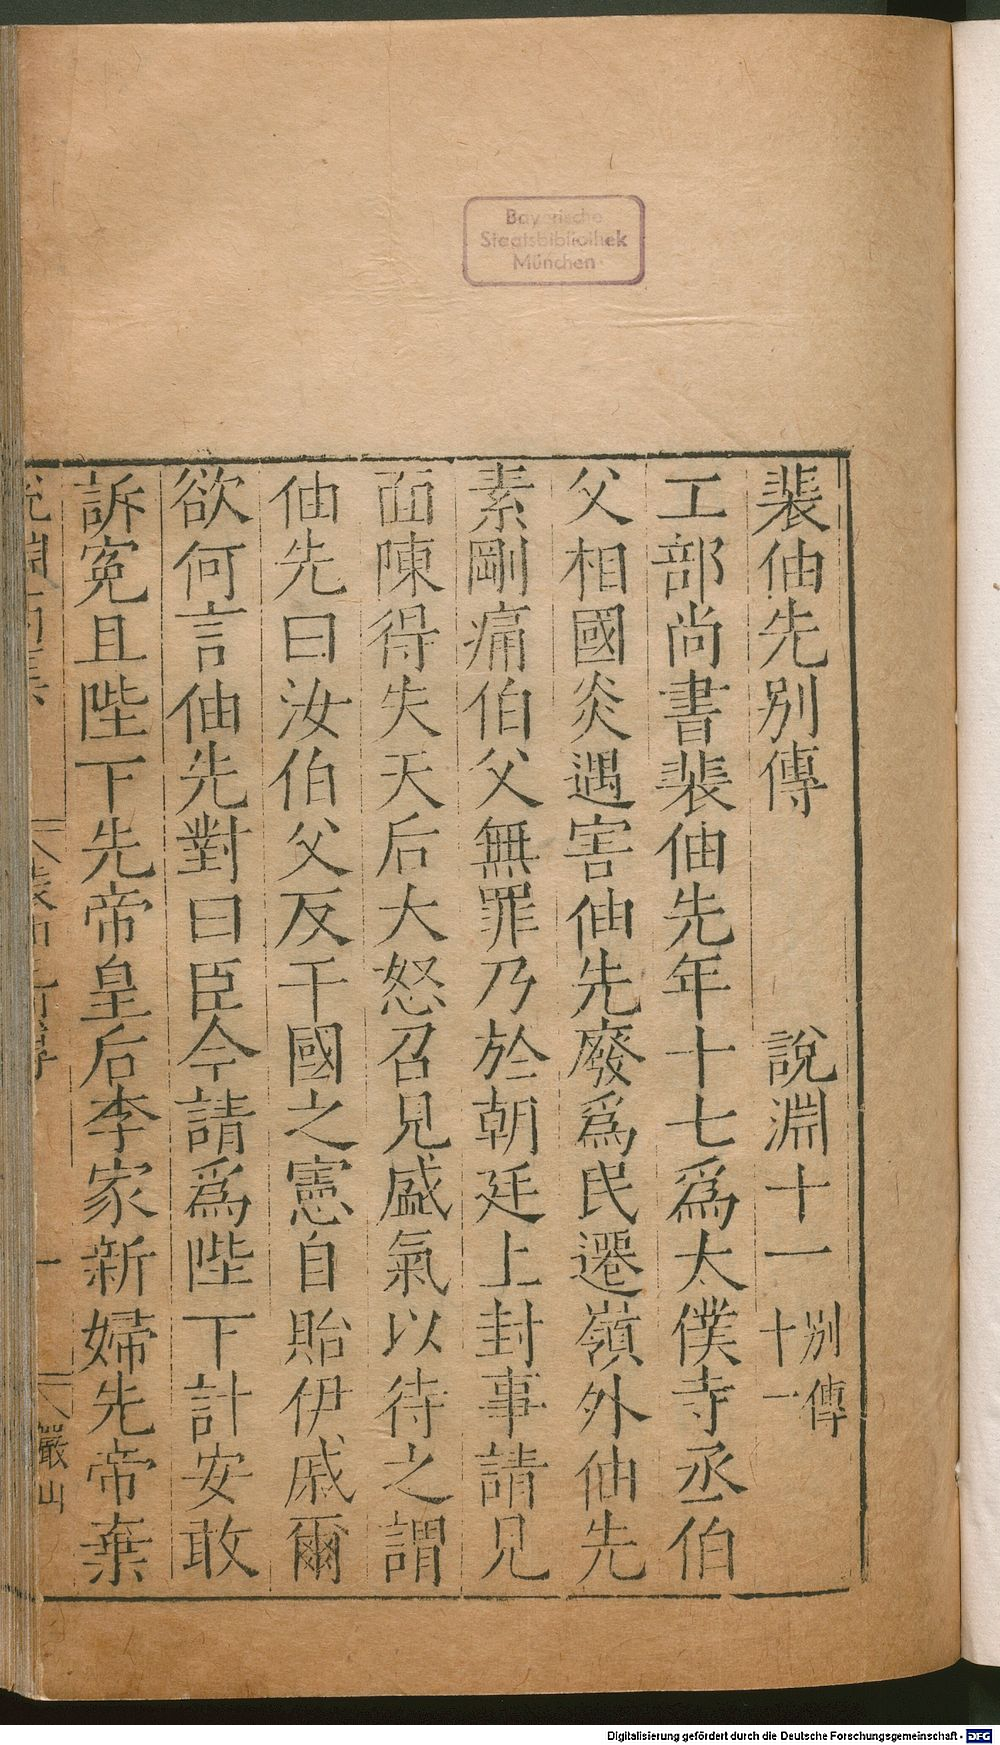 裴伷先別傳 說淵十一 別傳十一
工部尚書裴伷先年十七爲太僕寺丞伯
父相國炎遇害伷先廢爲民遷嶺外伷先
素剛痛伯父無罪乃於朝廷上封事請見
面陳得失天后大怒召見盛氣以待之謂
伷先曰汝伯父反干國之憲自貽伊戚爾
欲何言伷先對曰臣今請爲陛下計安敢
訴寃且陛下先帝皇后李家新婦先帝棄
一
嚴山
Bayerische
Staatsbibliothek
München
Digitalisierung gefördert durch die Deutsche Forschungsgemeinschaft - DFG